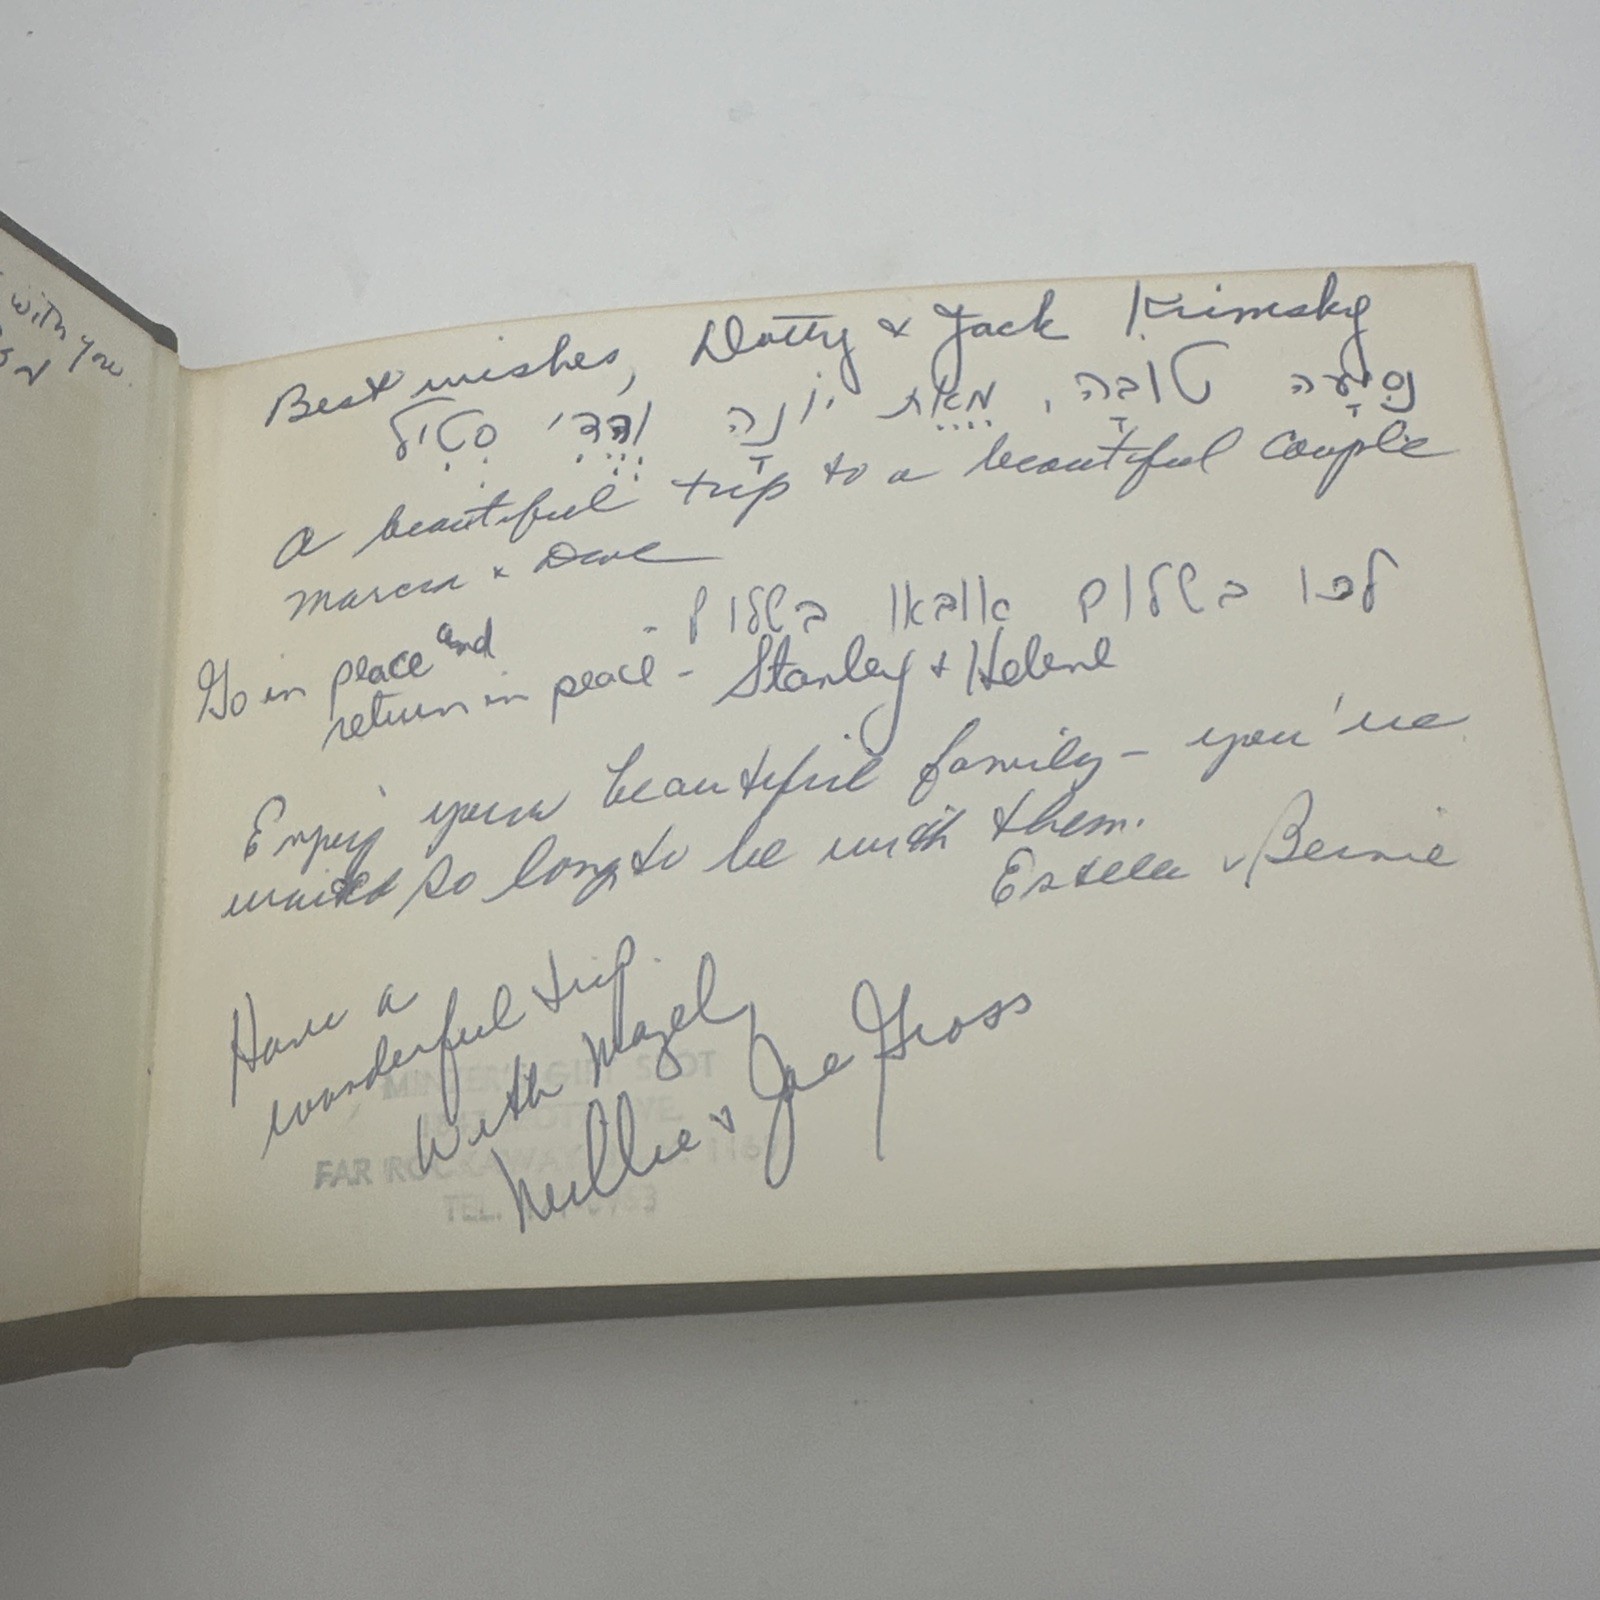 with you.
Best wishes, Dotty & Jack Krimsky
נְסִיעָה טוֹבָה, מֵאֵת יוֹנָה וְהֶרְי סְטִיל
A beautiful trip to a beautiful couple
Marcia & Dave
לכו בשלום ובאו בשלום -
Go in peace and
return in peace - Stanley & Helene
Enjoy your beautiful family - you've
waited so long to be with them.
Estelle & Bernie
Have a
wonderful trip.
With Mazel,
Millie & Joe Gross
MINTER'S GIFT SPOT
AVE.
FAR ROCKAWAY
TEL.